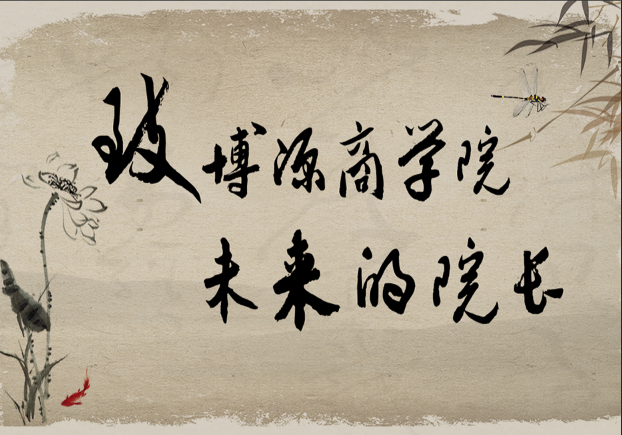 致博源商学院
未来的院长